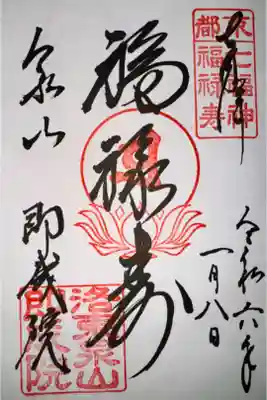 奉拝
京七福神
都福禄寿
令和六年
一月八日
福禄寿
泉山 即成院
洛東泉山
即成院